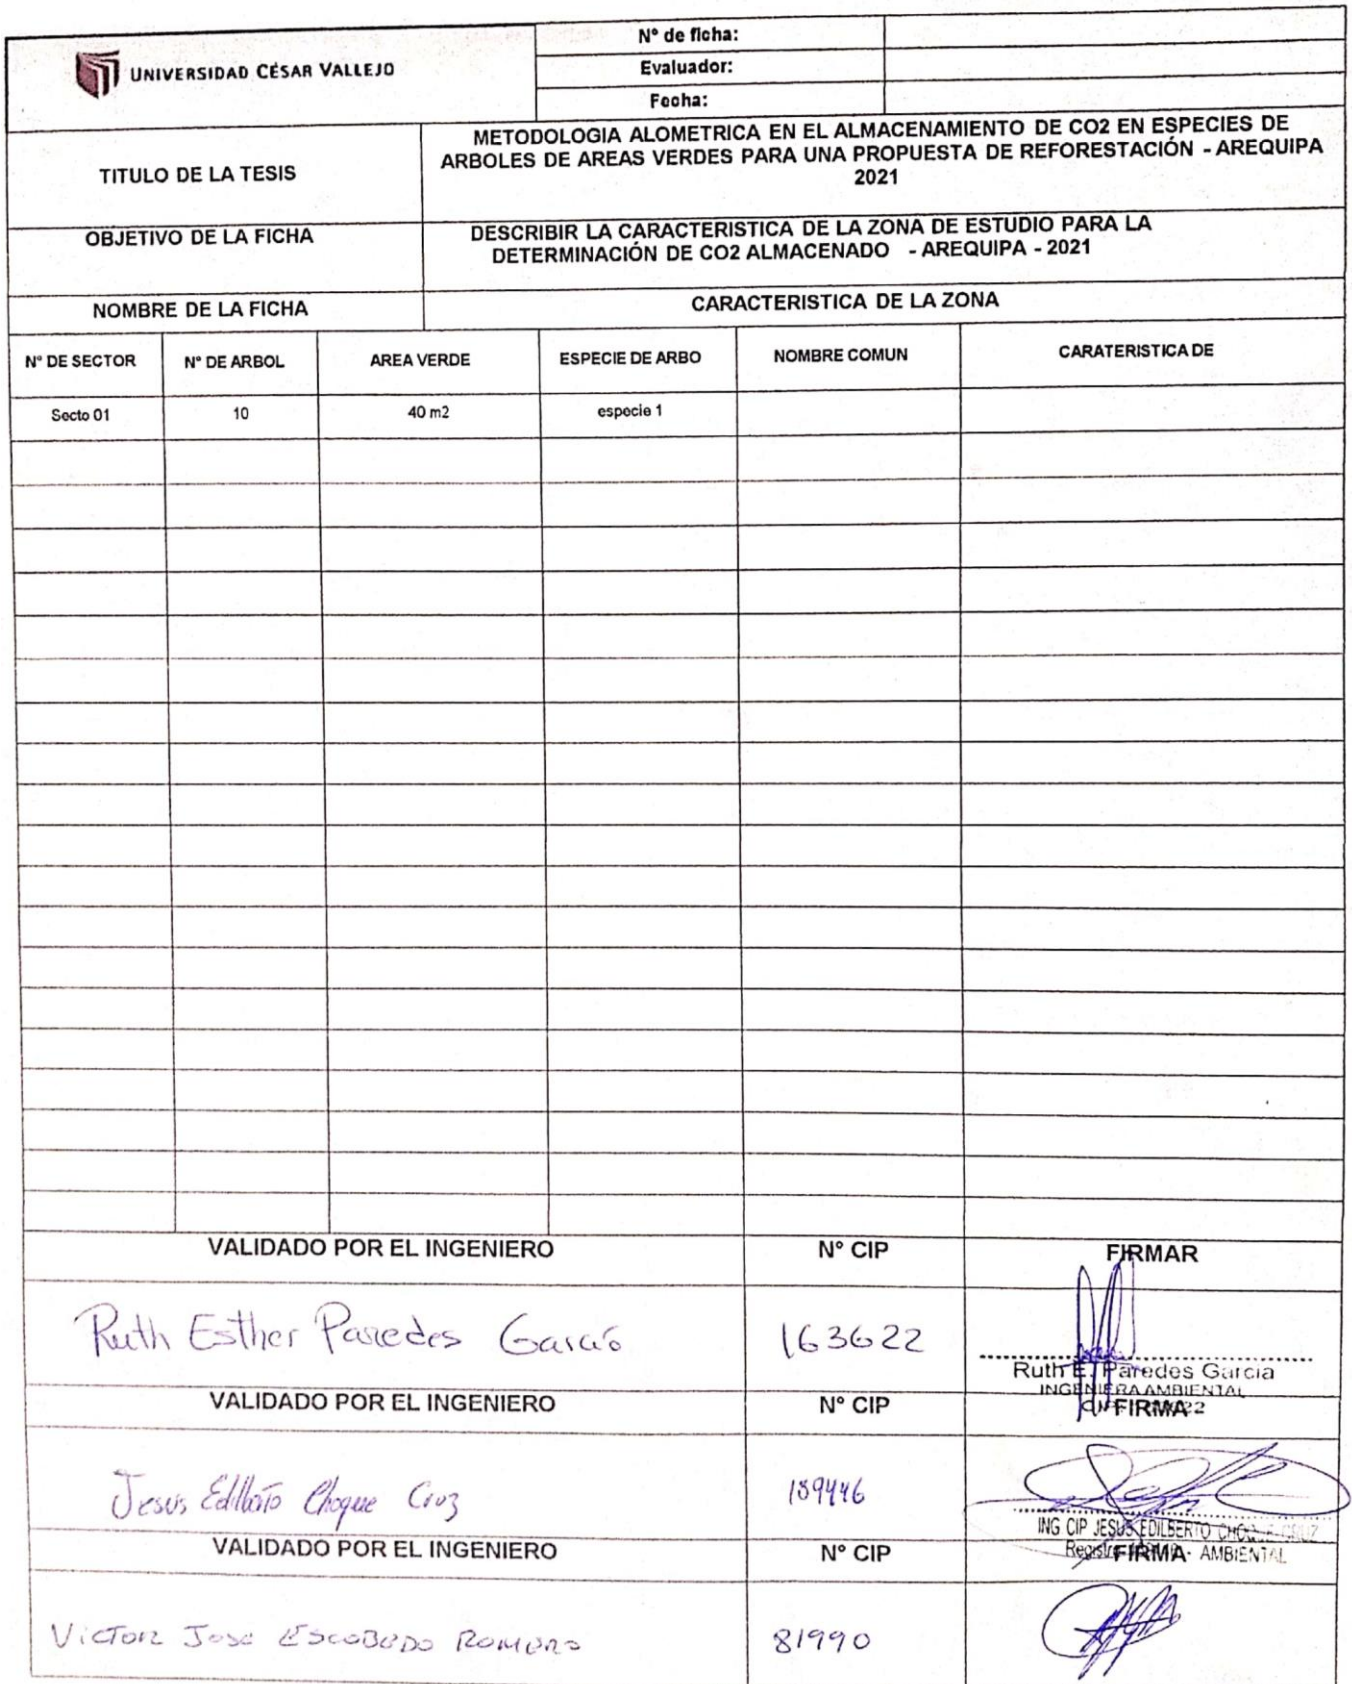 UNIVERSIDAD CÉSAR VALLEJO
N° de ficha:
Evaluador:
Fecha:
TITULO DE LA TESIS
METODOLOGIA ALOMETRICA EN EL ALMACENAMIENTO DE CO2 EN ESPECIES DE
ARBOLES DE AREAS VERDES PARA UNA PROPUESTA DE REFORESTACIÓN - AREQUIPA
2021
OBJETIVO DE LA FICHA
DESCRIBIR LA CARACTERISTICA DE LA ZONA DE ESTUDIO PARA LA
DETERMINACIÓN DE CO2 ALMACENADO - AREQUIPA - 2021
NOMBRE DE LA FICHA
CARACTERISTICA DE LA ZONA
N° DE SECTOR N° DE ARBOL AREA VERDE ESPECIE DE ARBO NOMBRE COMUN CARATERISTICA DE
Secto 01 10 40 m2 especie 1
VALIDADO POR EL INGENIERO N° CIP FIRMAR
Ruth Esther Paredes García 163622
Ruth E. Paredes Garcia
INGENIERA AMBIENTAL
VALIDADO POR EL INGENIERO N° CIP FIRMA
Jesus Edilberto Choque Cruz 189446
ING CIP JESUS EDILBERTO CHOQUE CRUZ
AMBIENTAL
VALIDADO POR EL INGENIERO N° CIP FIRMA
VICTOR JOSE ESCOBEDO ROMERO 81990